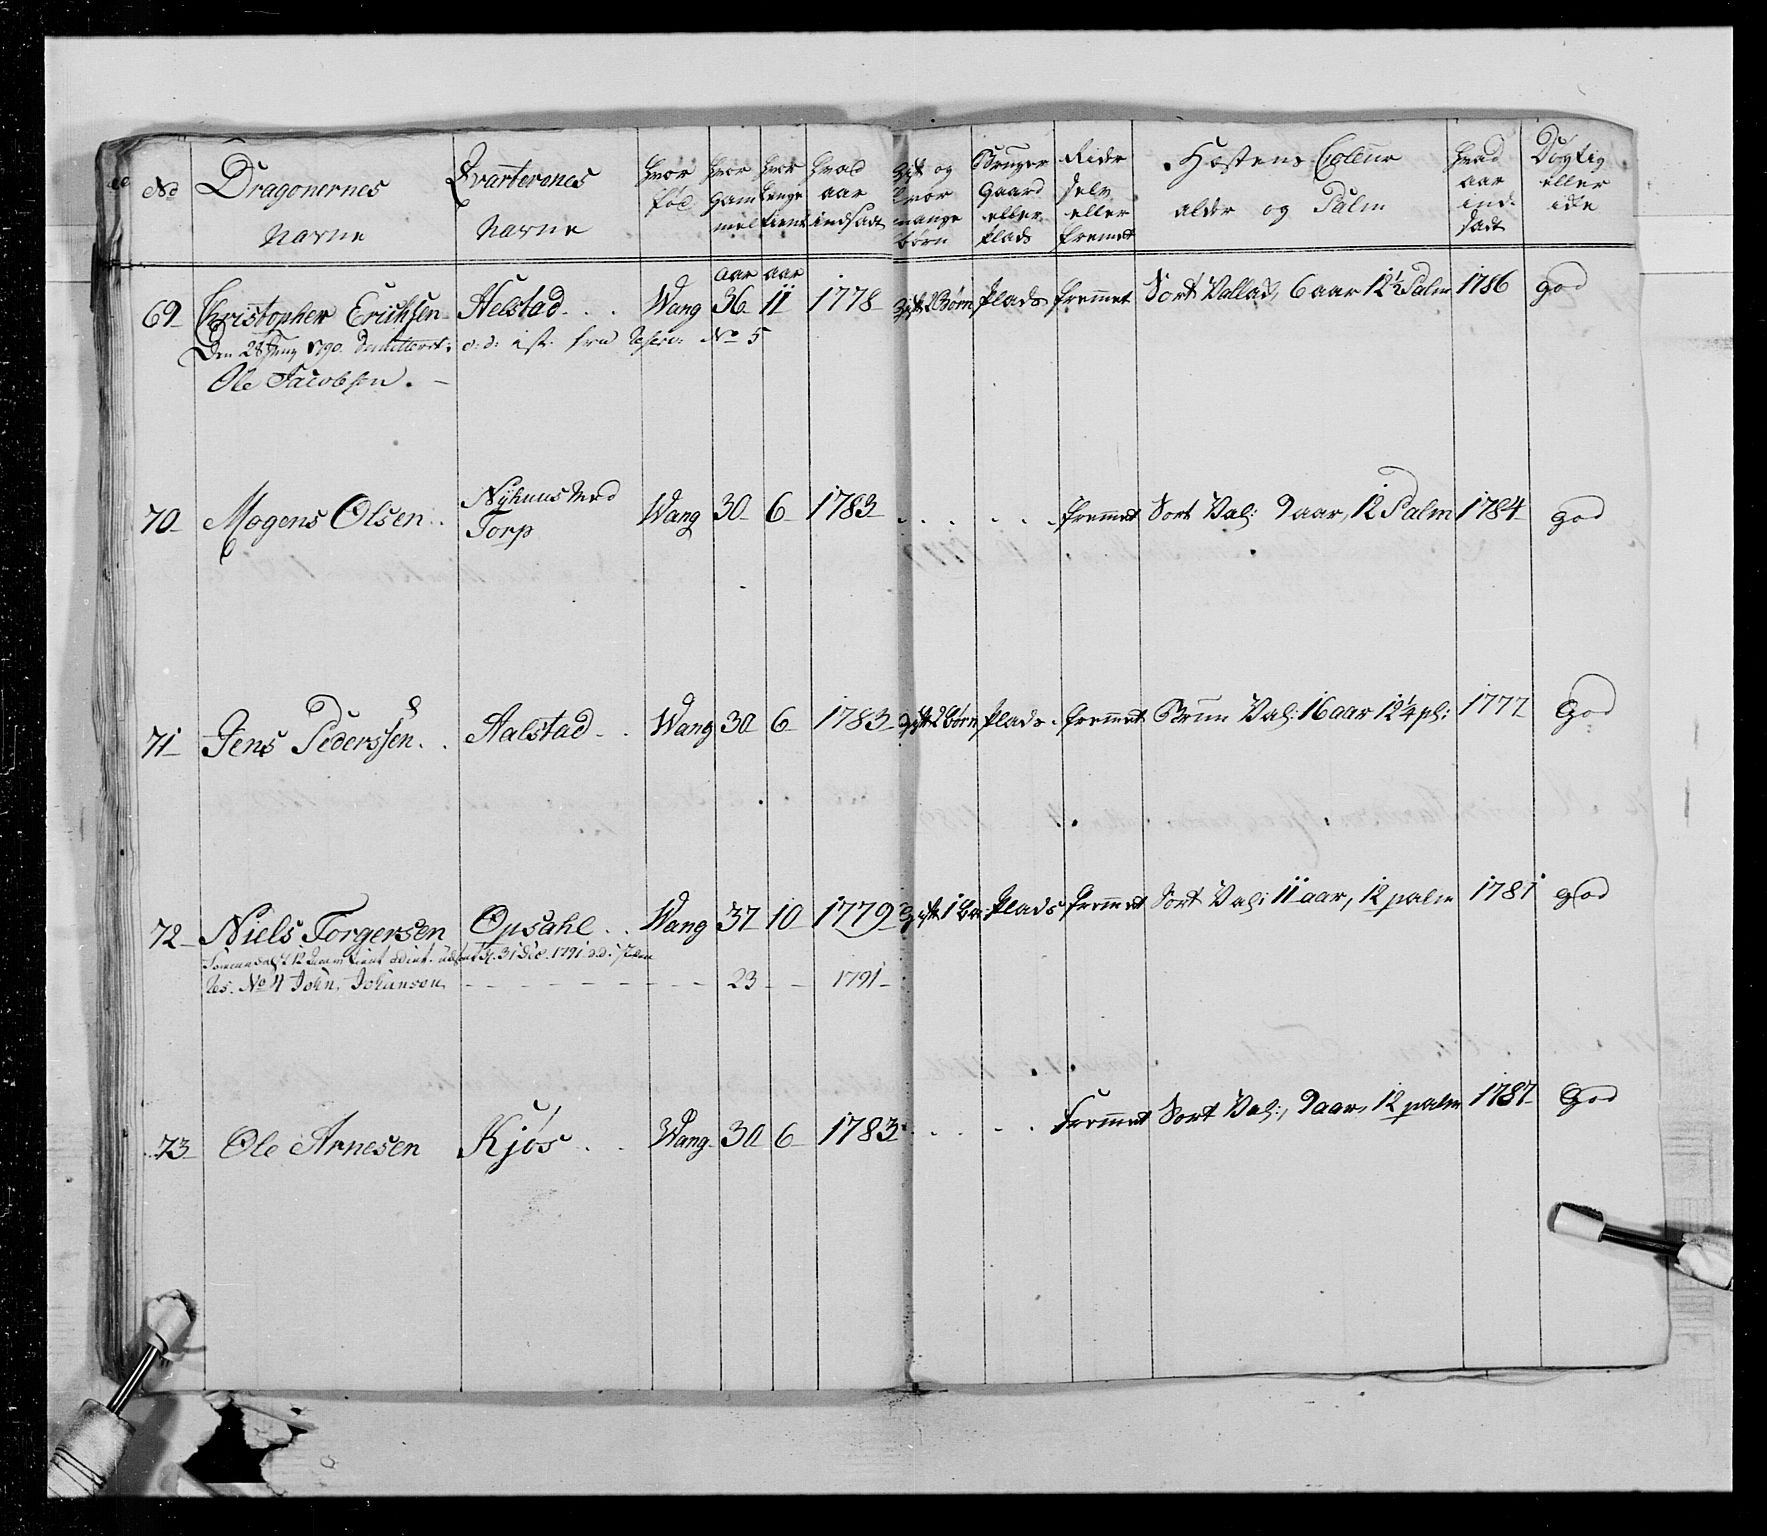 No Dragonernes Navne Qvarterenes Navne hvor föd hvor gam mel hvor lenge tient hvad aar indsadt gift og hvor mange börn Bruger gaard eller plads Ride selv eller fremet Hæstens Coleur alder og Palm hvad aar ind: sadt Dögtig eller ide
aar aar
69 Christopher Erichsen Helstad Wang 36 11 1778 gift 2 Börn plads fremmet Sort Vallad, 6 aar 12½ Palm 1786 god
Den 28 1790 d: d: ist: fra No 5
Ole Jacobsen
70 Mogens Olsen Nÿhuus Torp Wang 30 6 1783 fremmet Sort Val: 9 aar, 12 Palm 1784 god
71 Jens Pederssen Aalstad Wang 30 6 1783 gift 2 börn plads fremmet Brun Val: 16 aar 12¼ pl: 1777 God
72 Niels Torgersen Opsahl Wang 37 10 1779 gift 1 Bn plads fremmet Sort Val: 11 aar, 12 palm 1781 god
12 tient 31 Dec. 1791 d.d.
Res. No 4 John Johansen 23 1791
73 Ole Arnesen Kjös Wang 30 6 1783 fremmet Sort Val:, 9 aar, 12 palm 1787 God